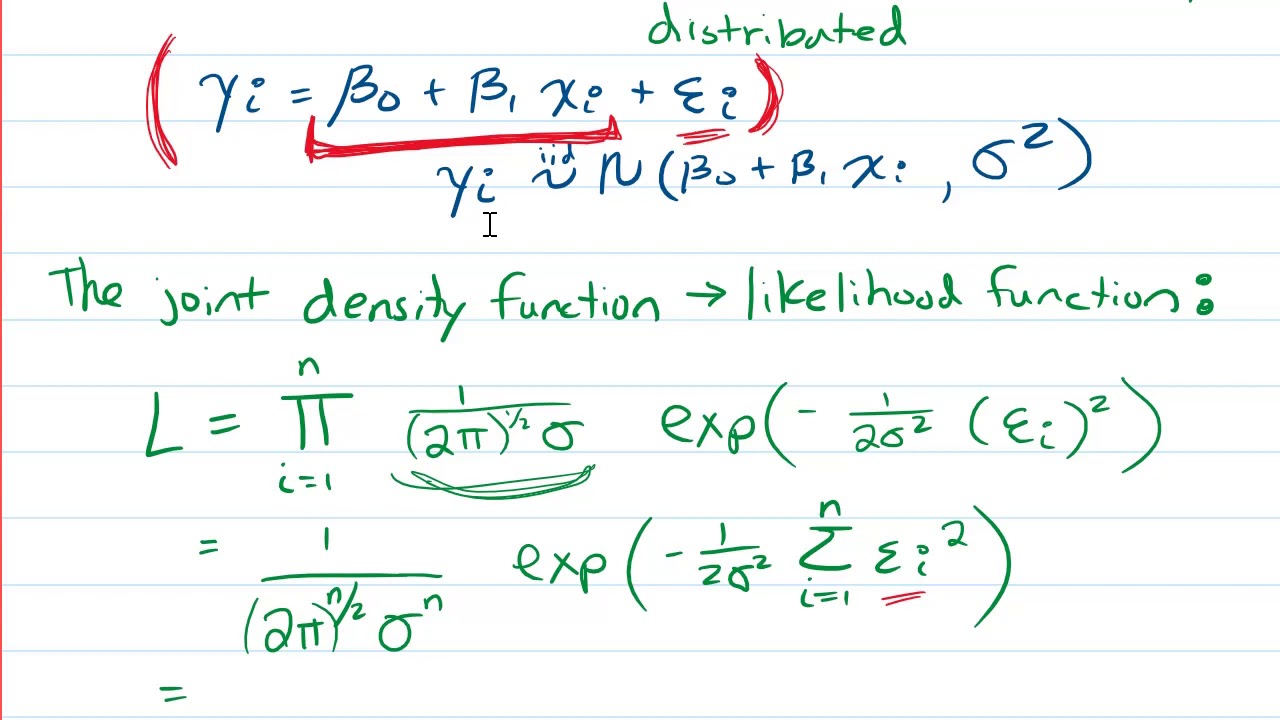 distributed
( yi = β₀ + β₁ xi + εi )
yi ~iid N(β₀ + β₁ xi , σ²)
The joint density function → likelihood function:
L = ∏_{i=1}^{n} 1/((2π)^{1/2} σ) exp(- 1/(2σ²) (εi)²)
= 1/((2π)^{n/2} σ^n) exp(- 1/(2σ²) ∑_{i=1}^{n} εi²)
=